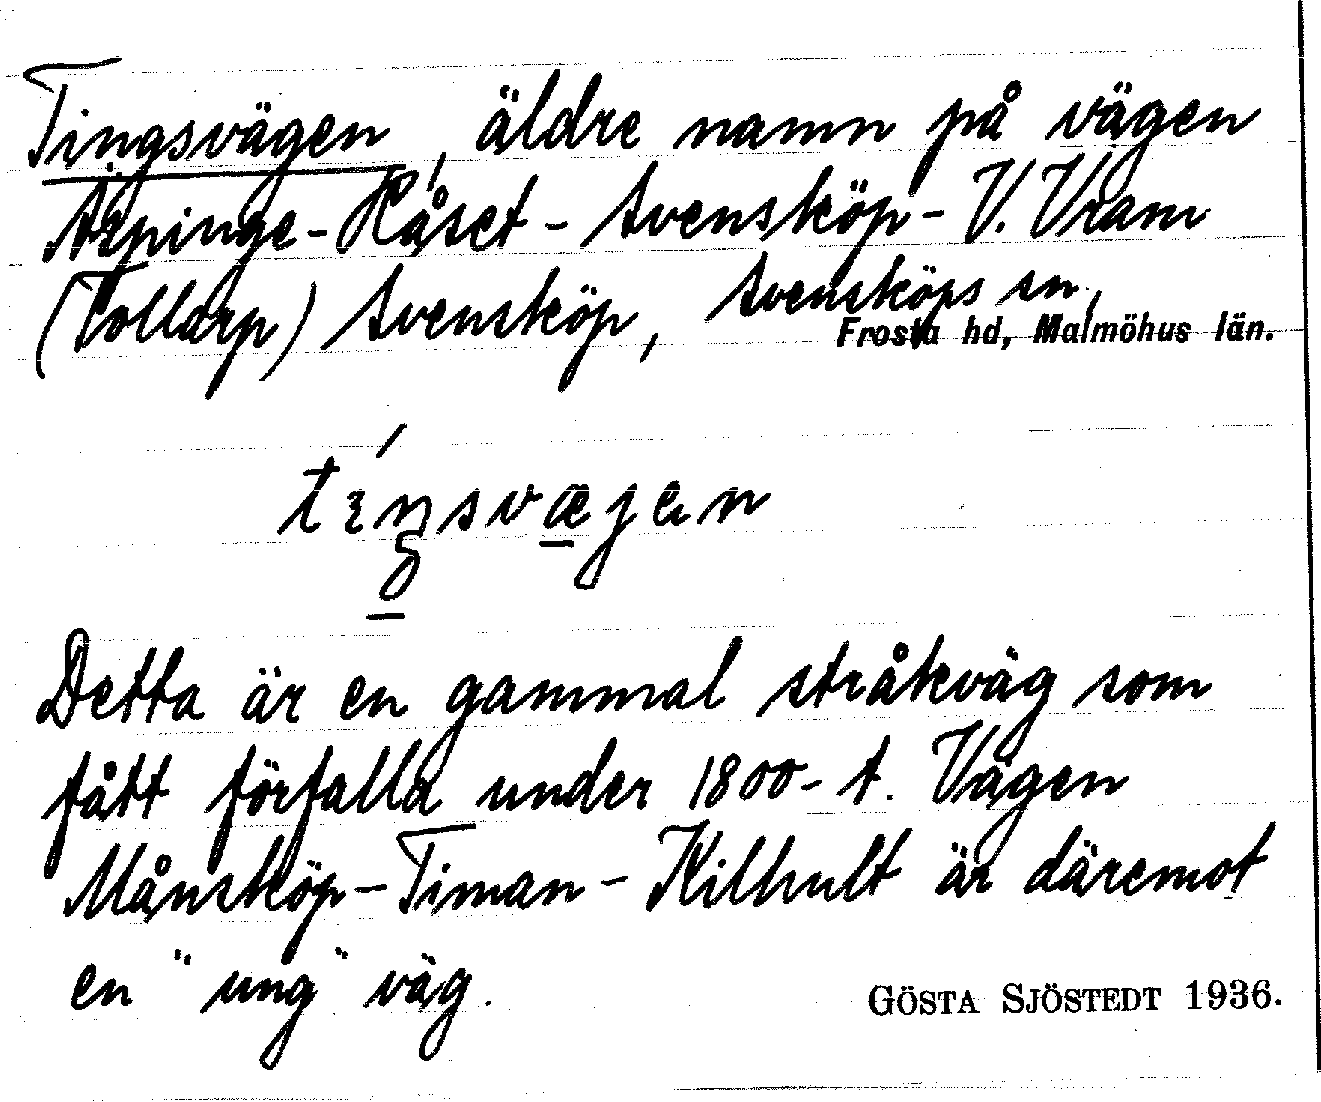 Tingsvägen, äldre namn på vägen
Ärpinge-Håset - Svensköp - V. Vram
(Tollarp) Svensköp, Svensköps sn,
Frosta hd, Malmöhus län.
Detta är en gammal stråkväg som
fått förfalla under 1800-t. Vägen
Månsköp - Timan - Kilhult är däremot
en "ung" väg.
GÖSTA SJÖSTEDT 1936.